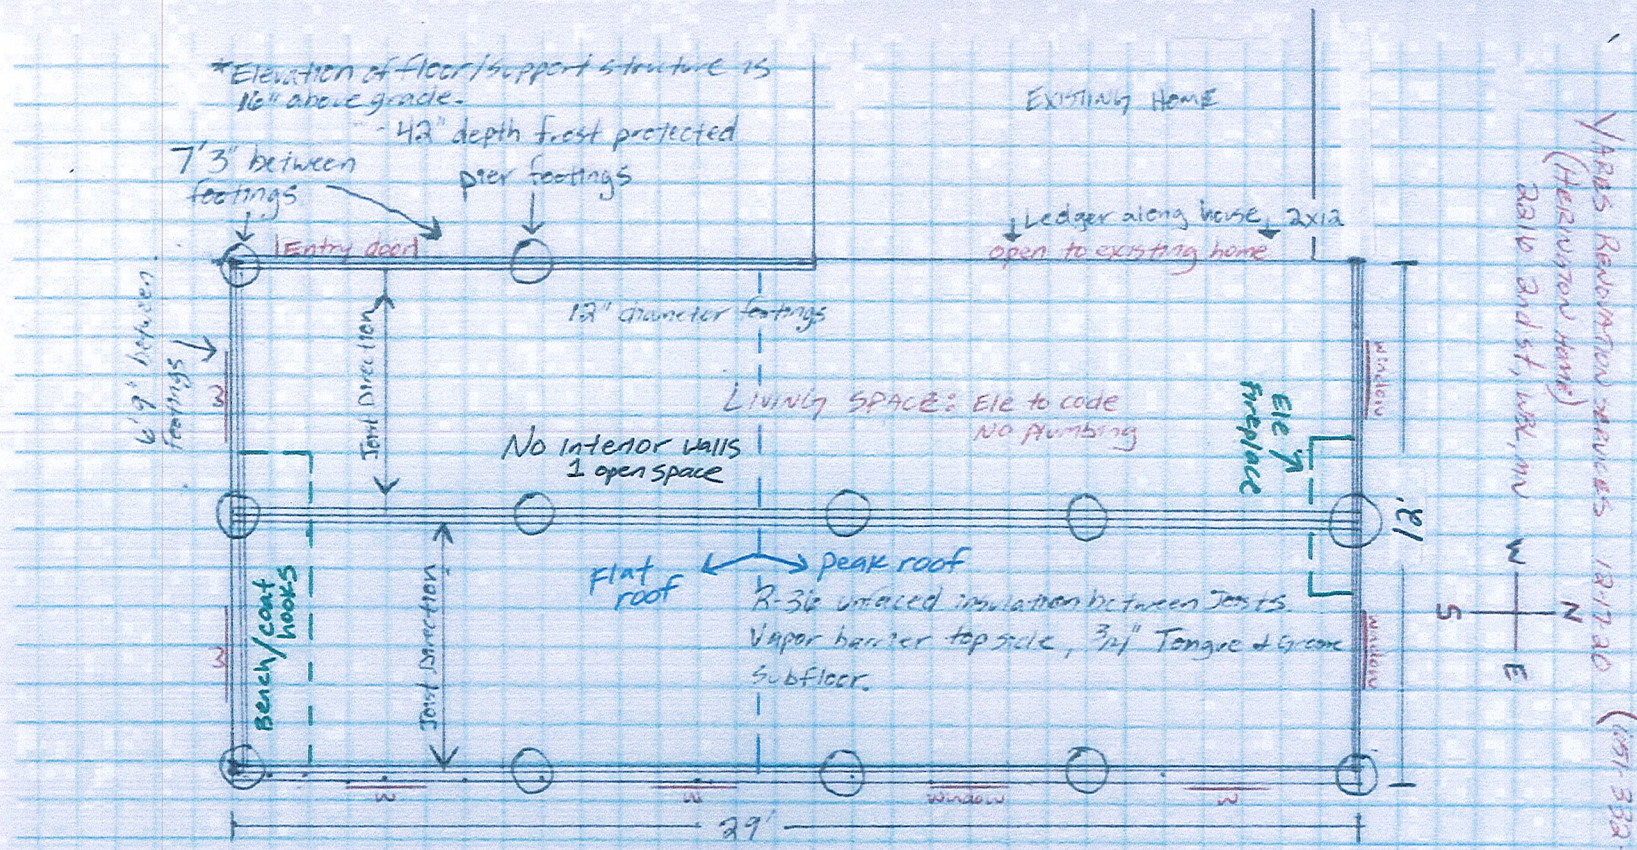 *Elevation of floor/support structure is
16" above grade.
- 42" depth frost protected
pier footings
7'3" between
footings
EXISTING HOME
Ledger along house 2x12
open to existing home
Entry door
12" diameter footings
6'9" between
footings
Joist Direction
LIVING SPACE: Ele to code
No Plumbing
No Interior walls
1 open space
Ele
Fireplace
window
W
Flat
roof
peak roof
R-36 unfaced insulation between Joists.
Vapor barrier top side, 3/4" Tongue & Groove
subfloor.
Bench/coat
hooks
Joist Direction
W
window
W
W
window
W
29'
12'
N
W
S
E
RENOVATION SERVICES 12-17-20 (651-332-
HOME)
2216 2nd st, WBL, MN